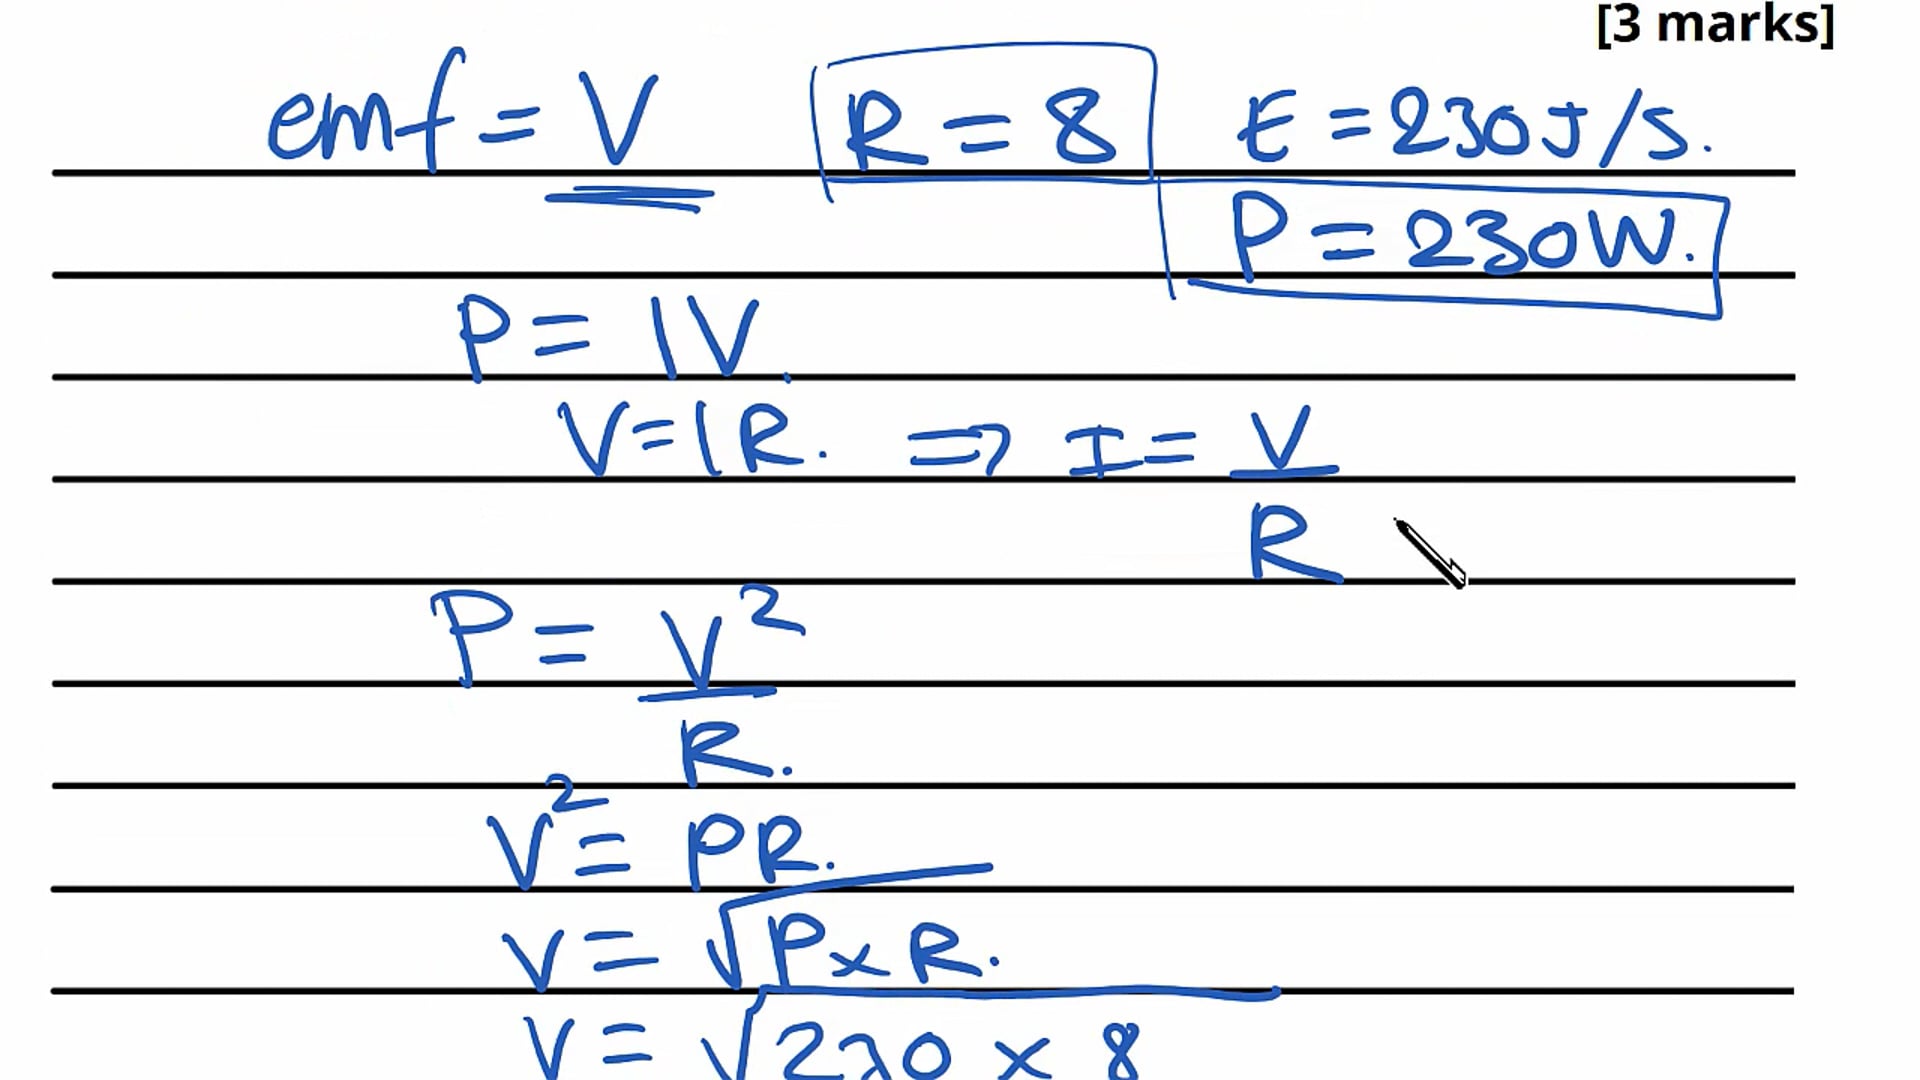 [3 marks]
emf = V R = 8 E = 230J/s.
P = 230W.
P = IV.
V = IR. => I = V
R
P = V²
R.
V² = PR.
V = √P×R.
V = √230 × 8